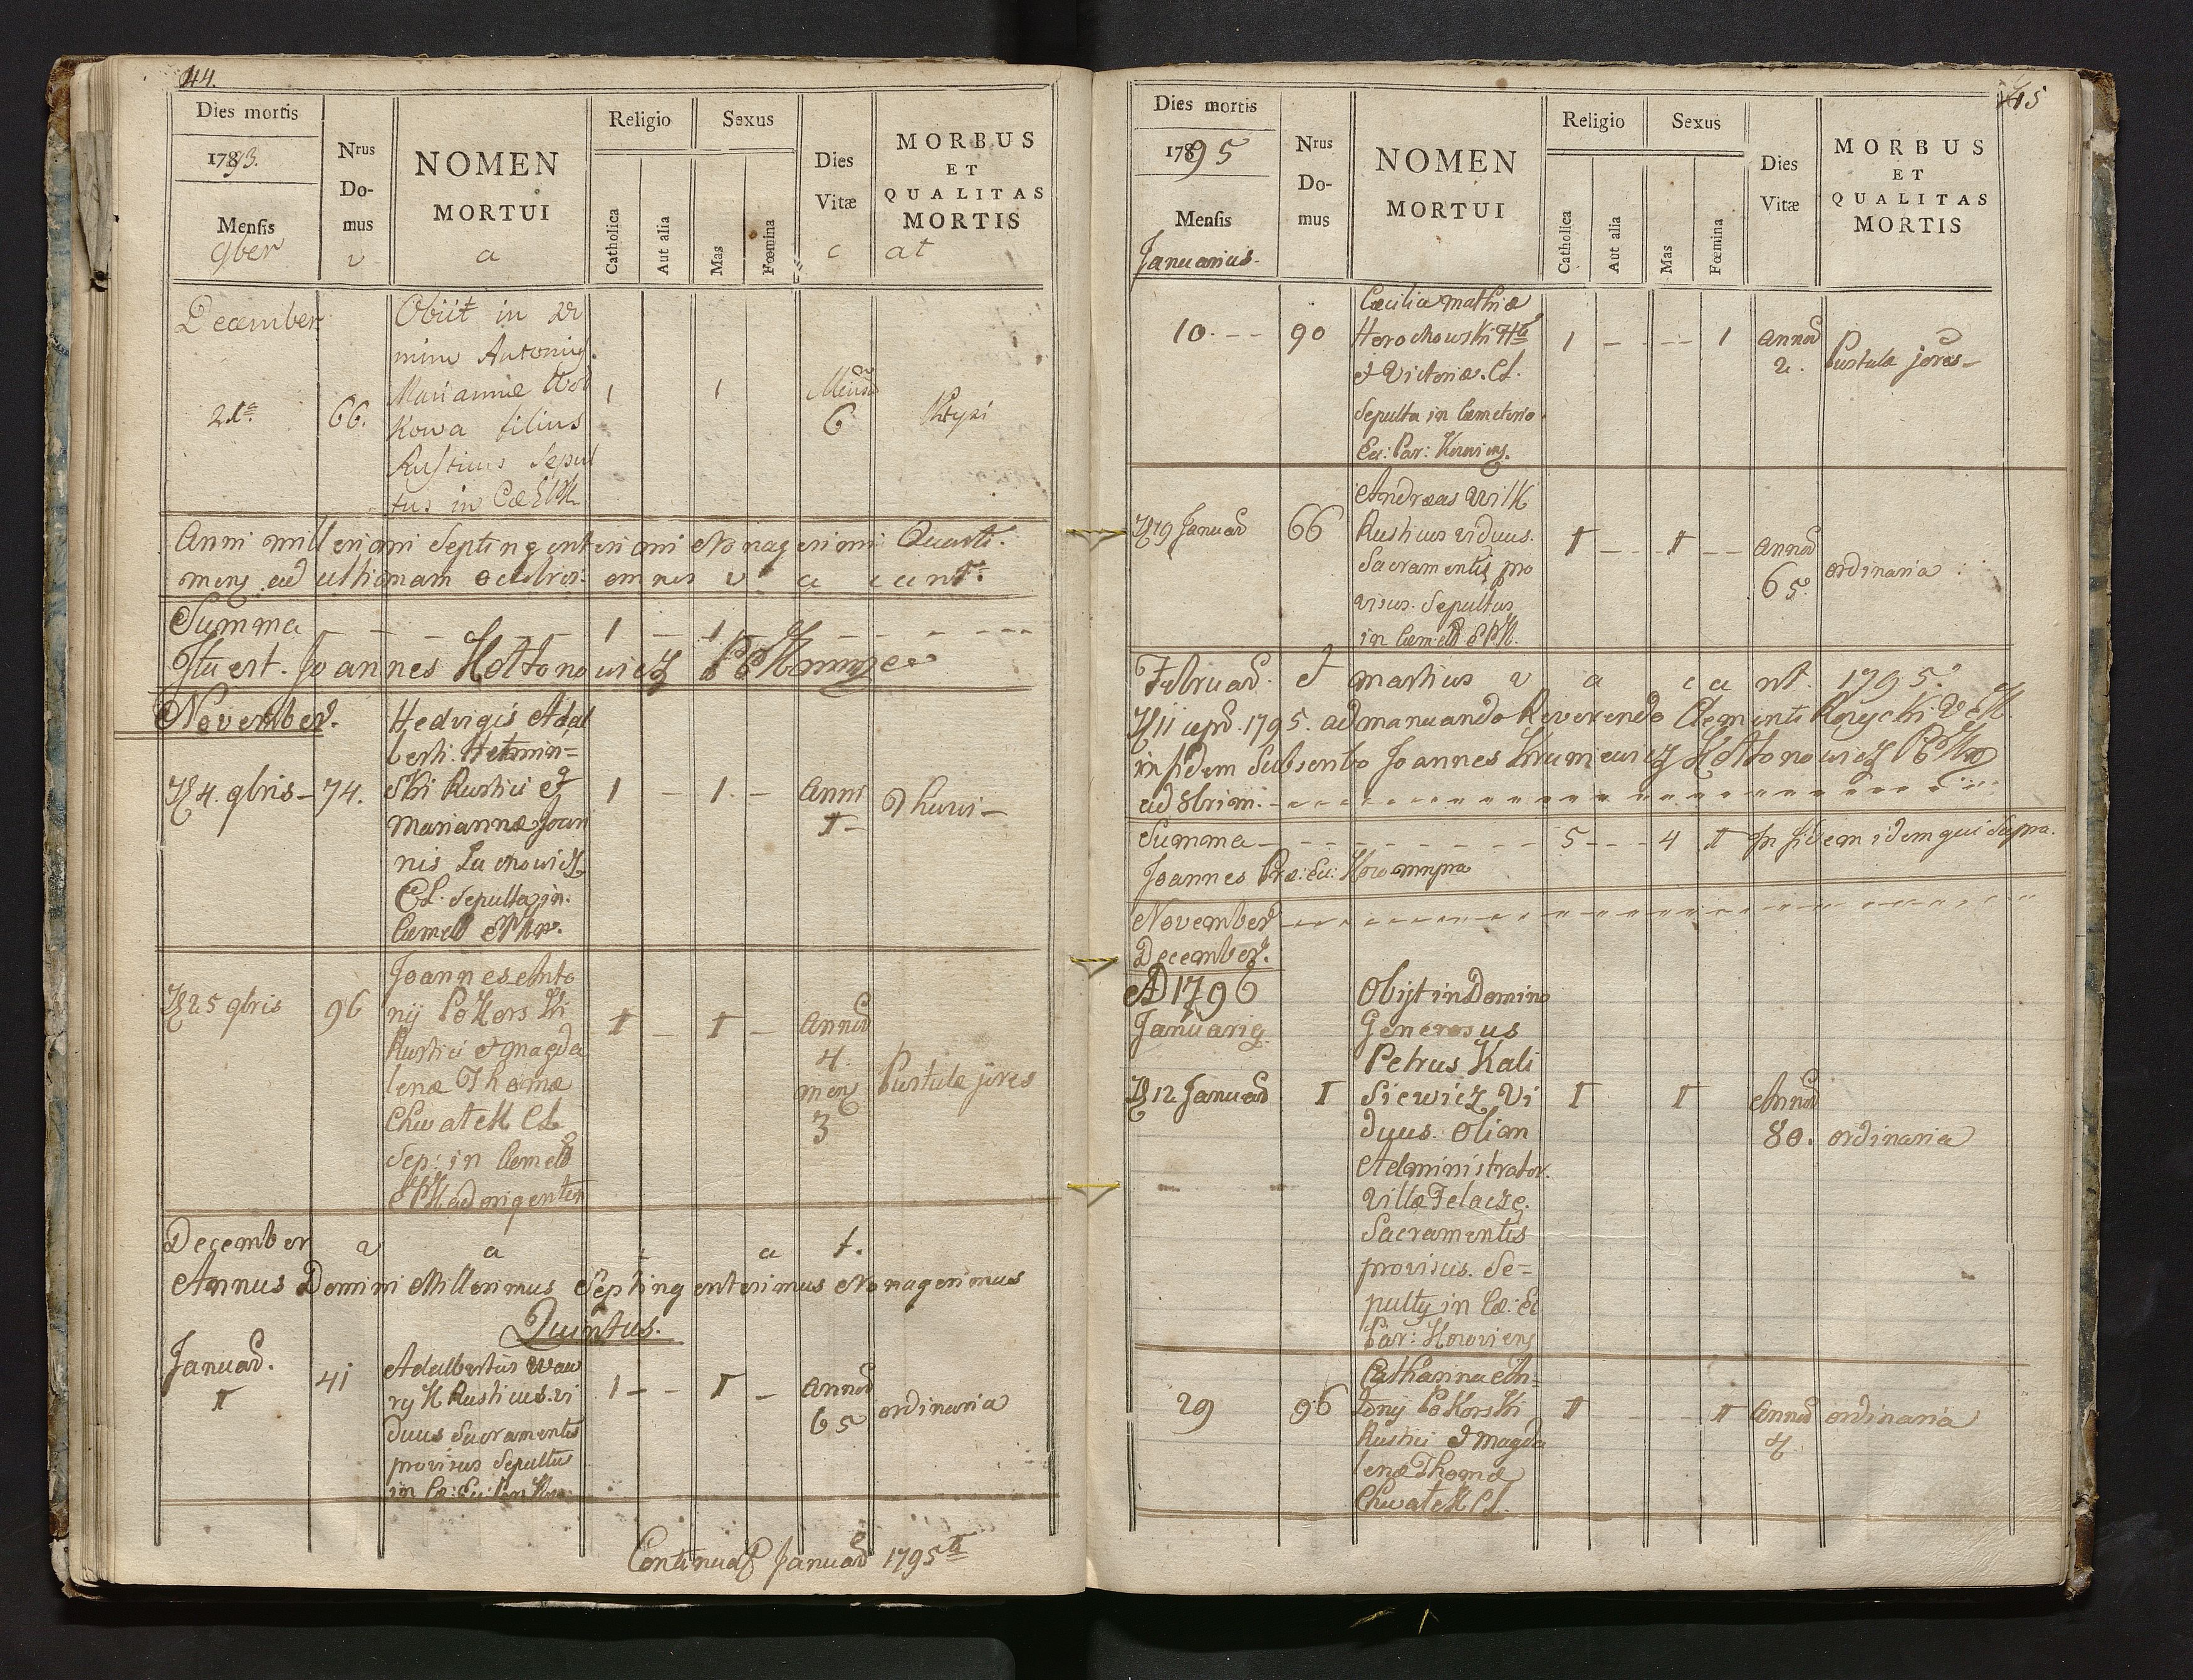 44.
Dies mortis
1793.
Mensis
9ber
Nrus
Do-
mus
v
NOMEN
MORTUI
a
Religio
Catholica
Aut alia
Sexus
Mas
Fœmina
Dies
Vitæ
c
MORBUS
ET
QUALITAS
MORTIS
at
December
21ª
66.
Obiit in Do
mino Antonius
Mariannæ
kowa filius
Rusticus Sepul
tus in Cæ EPK
1
1
6
Anni millesimi Septingentesimi Nonagesimi Quarti.
mens ad ultimam octobris omnes v a cant.
Summa - - - - 1 - 1 - - - -
Ita est. Joannes Hottonowicz
November.
4. 9bris
74.
Hedvigis Adal
berti Hetmin=
ski Rustici et
Mariannæ Joan
nis Lachowicz
CL. Sepulta in
Cemet
1 - 1. -
Anni
I -
Thusis -
25 9bris
96
Joannes Anto
nij Pokorski
Rustici et Magda
lenæ Thomæ
Chwatek CL
Sep: in Cemet
EPK ad
I - I -
Annor
4.
mens
3
Pustulæ jores
December v a c a t.
Annus Domini Millesimus Septingentesimus Nonagesimus
Quintus.
Januar.
I
41
Adalbertus Waw
ryk Rusticus vi
duus Sacramentis
provisus Sepultus
in Cæ: Ec: Par:
1 - - I -
Annor
65
ordinaria
Continuat Januar 1795
45
Dies mortis
1795
Mensis
Januarius.
Nrus
Do-
mus
NOMEN
MORTUI
Religio
Catholica
Aut alia
Sexus
Mas
Fœmina
Dies
Vitæ
MORBUS
ET
QUALITAS
MORTIS
10. - -
90
Cæcilia Mathiæ
Horochowski
et Victoriæ. CL.
Sepulta in Cæmeterio
Ec: Par:
1 - - - 1
Annor
2.
Pustulæ jores -
19 Januar
66
Andreas Wilk
Rusticus viduus.
Sacramentis pro
visus. Sepultus
in Cemet EPK.
I - - I - -
Annor
65.
ordinaria
Februar. et Martius v a ca nt. 1795.
11 apr. 1795. ad manuando Reverendo Clementi
in fidem Subscribo Joannes Hottonowicz
ad 8brim. -
Summa - - - - 5 - - - 4 I In fidem idem qui Supra.
Joannes Præ: Ec:
November
December.
AD 1796
Januarius
12 Januar
I
Obijt in Domino
Generosus
Petrus Kali
siewicz Vi
duus. Olim
Administrator
Villæ
Sacramentis
provisus. Se=
pultus in Cæ: Ec
Par:
I I
Annor
80.
ordinaria
29
96
Catharina An=
tonij Pokorski
Rustici et Magda
lenæ Thomæ
Chwatek CL.
I - - - I
Annor
ordinaria